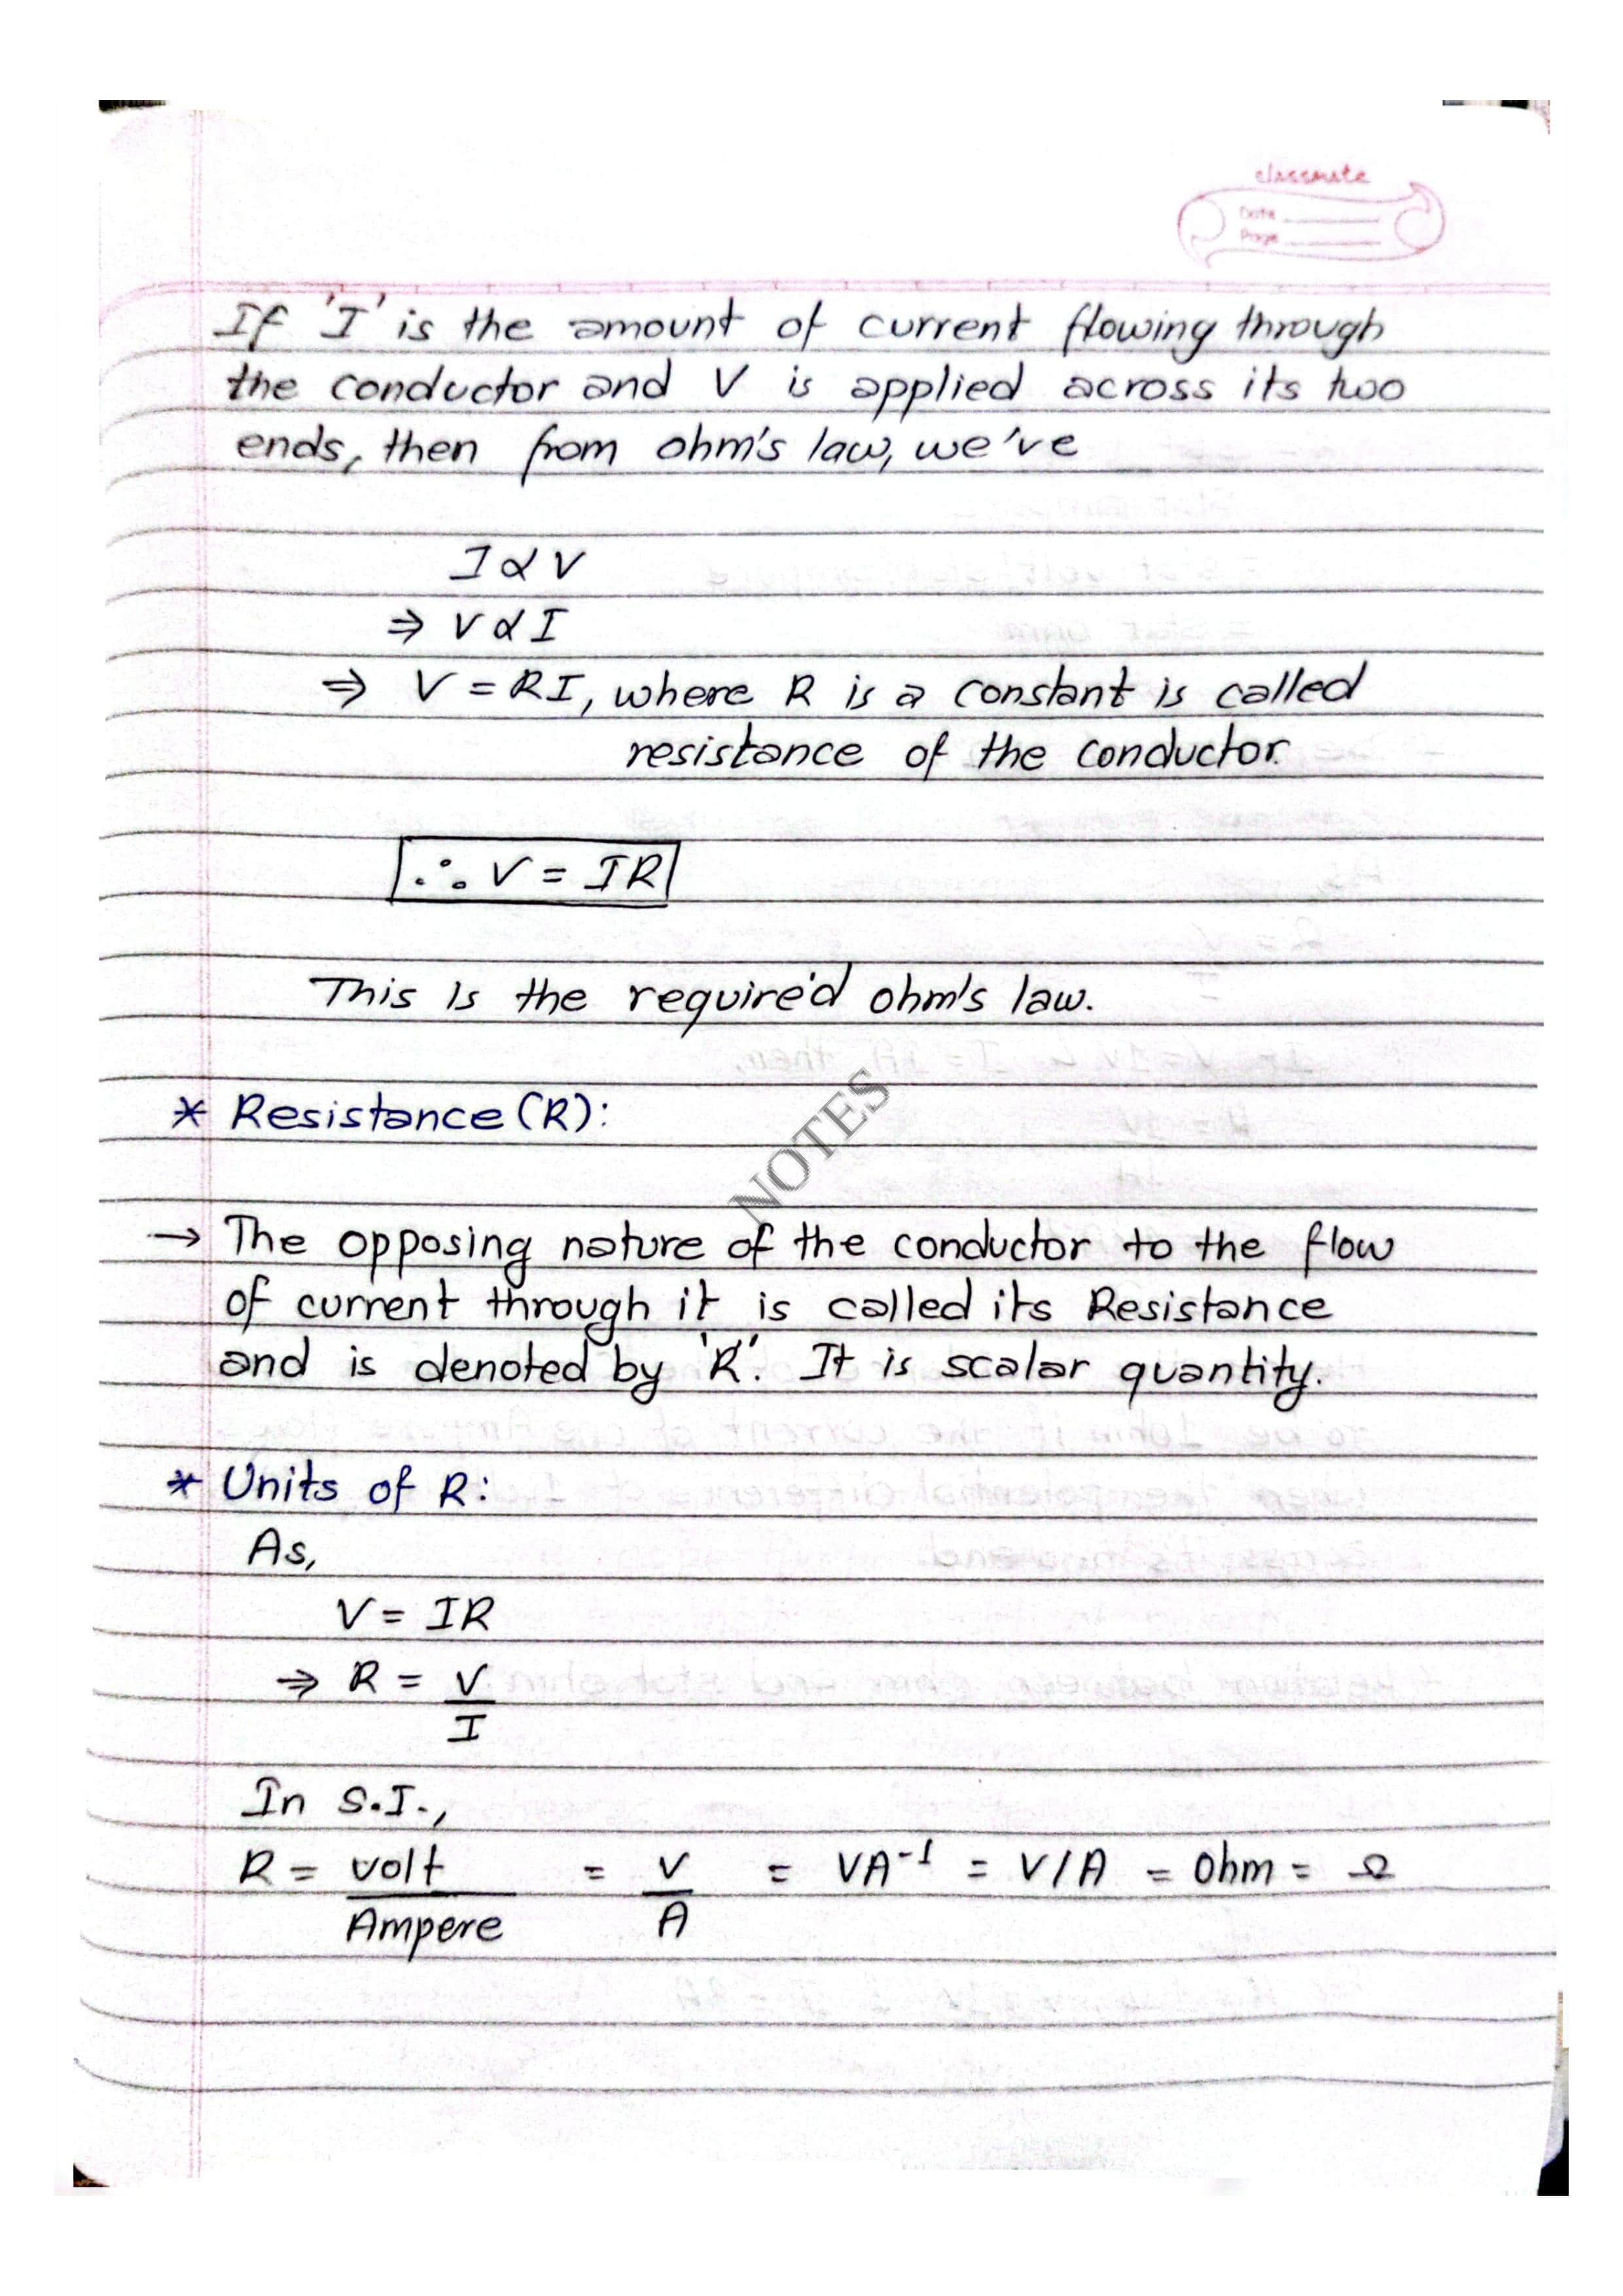 classmate
Date
Page
If 'I' is the amount of current flowing through
the conductor and V is applied across its two
ends, then from ohm's law, we've
I ∝ V
⇒ V ∝ I
⇒ V = RI, where R is a constant is called
resistance of the conductor.
∴ V = IR
This is the required ohm's law.
* Resistance (R):
NOTES
→ The opposing nature of the conductor to the flow
of current through it is called its Resistance
and is denoted by 'R'. It is scalar quantity.
* Units of R:
As,
V = IR
⇒ R = V/I
In S.I.,
R = volt/Ampere = V/A = VA⁻¹ = V/A = Ohm = Ω